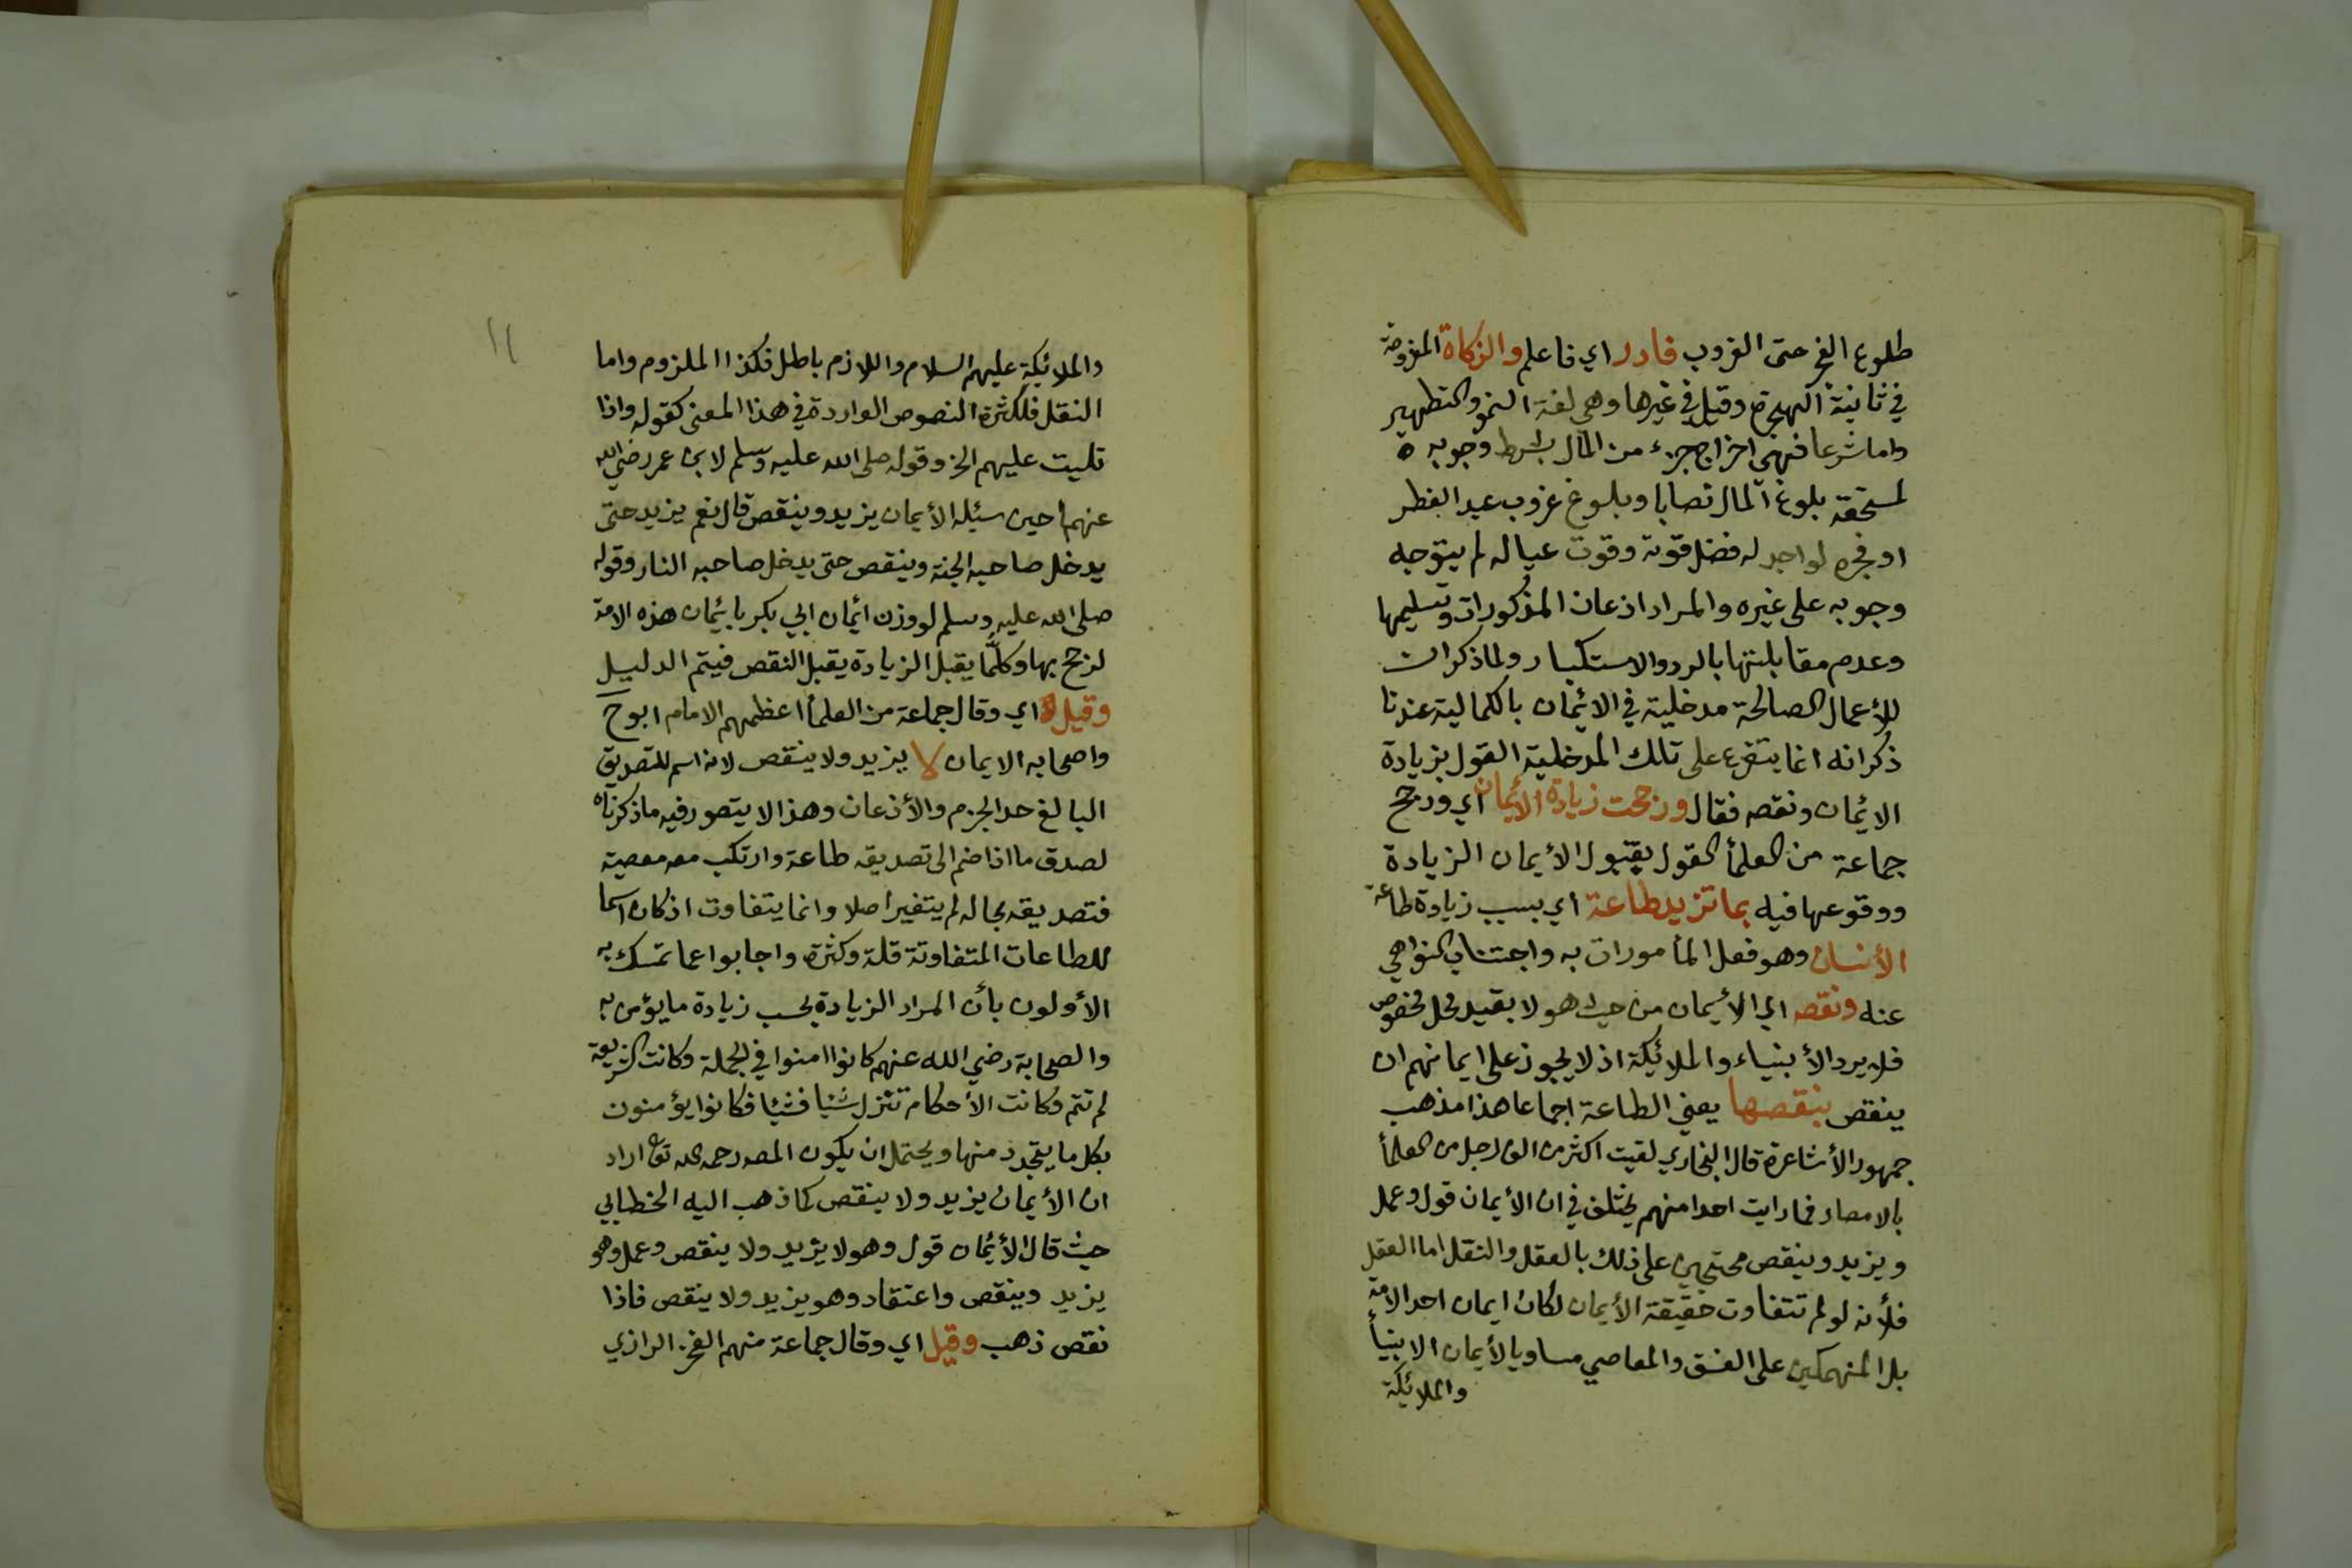 طلوع الفجر حتى الغروب فادر اي فاعلم والزكاة المفروضة
في ثانية الهجرة وقيل في غيرها وهي لغة النمو والتطهير
واما شرعا فهي اخراج جزء من المال بشرط وجوبه ه
لمستحقه بلوغ المال نصابا وبلوغ غروب عيد الفطر
او فجره لواجد له فضل قوته وقوت عياله لم يتوجه
وجوبه على غيره والمراد اذعان المذكورات وتسليمها
وعدم مقابلتها بالرد والاستكبار ولما ذكر ان
للأعمال الصالحة مدخلية في الائمان بالكمالية عندنا
ذكر انه انما يتفرع على تلك المدخلية القول بزيادة
الائمان ونقصه فقال ورجحت زيادة الائمان اي ورجح
جماعة من العلمأ القول بقبول الأيمان الزيادة
ووقوعها فيه بما تزيد طاعة اي بسبب زيادة طاعة
الأنسان وهو فعل المأمورات به واجتناب النواهي
عنه ونقصه اي الأيمان من حيث هو لا بقيد محل مخصوص
فلا يرد الأنبياء والملائكة اذ لا يجوز على ايمانهم ان
ينقص بنقصها يعني الطاعة اجماعا هذا مذهب
جمهور الأشاعرة قال البخاري لقيت اكثر من الف رجل من العلمأ
بالامصار فما رايت احدا منهم يختلف في ان الأيمان قول وعمل
ويزيد وينقص محتجين على ذلك بالعقل والنقل اما العقل
فلأنه لو لم تتفاوت حقيقة الأيمان لكان ايمان احد الامة
بل المنهمكين على الفسق والمعاصي مساويا لأيمان الانبيأ
والملائكة
١١
والملائكة عليهم السلام واللازم باطل فكذا الملزوم واما
النقل فلكثرة النصوص الواردة في هذا المعنى كقوله واذا
تليت عليهم الخ وقوله صلى الله عليه وسلم لابن عمر رضي الله
عنهما حين سئله الأيمان يزيد وينقص قال نعم يزيد حتى
يدخل صاحبه الجنة وينقص حتى يدخل صاحبه النار وقوله
صلى الله عليه وسلم لو وزن ائمان ابي بكر بائمان هذه الامة
لرجح بها وكلما يقبل الزيادة يقبل النقص فيتم الدليل
وقيل اي وقال جماعة من العلمأ اعظمهم الامام ابو ح
واصحابه الايمان لا يزيد ولا ينقص لانه اسم للتصديق
البالغ حد الجزم والأذعان وهذا لا يتصور فيه ما ذكرناه
لصدق ما اذا ضم الى تصديقه طاعة وارتكب معه معصية
فتصديقه بحاله لم يتغير اصلا وانما يتفاوت اذ كان اسما
للطاعات المتفاوتة قلة وكثرة واجابوا عما تمسك به
الأولون بأن المراد الزيادة بحسب زيادة ما يؤمن به
والصحابة رضي الله عنهم كانوا امنوا في الجملة وكانت الشريعة
لم تتم وكانت الأحكام تتنزل شئيا فشئيا فكانوا يؤمنون
بكل ما يتجدد منها ويحتمل ان يكون المصـ رحمه الله تعا اراد
ان الأيمان يزيد ولا ينقص كما ذهب اليه الخطابي
حيث قال الأئمان قول وهو لا يزيد ولا ينقص وعمل وهو
يزيد وينقص واعتقاد وهو يزيد ولا ينقص فاذا
نقص ذهب وقيل اي وقال جماعة منهم الفخر الرازي